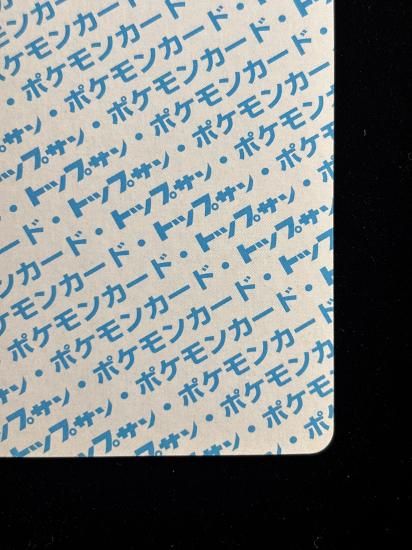 ケモンカード・
・ポケモンカード・
サン・ポケモンカード・ト
トップサン・ポケモンカー
・トップサン・ポケモン
ド・トップサン・ポケ
カード・トップサン・ポ
ンカード・トップサン
モンカード・トップサ
ケモンカード・トップ
ポケモンカード・ト
・ポケモンカード・
サン・ポケモンカード
プサン・ポケモンカ
トップサン・ポケモン
トップサン・ポケ
サン・ポ